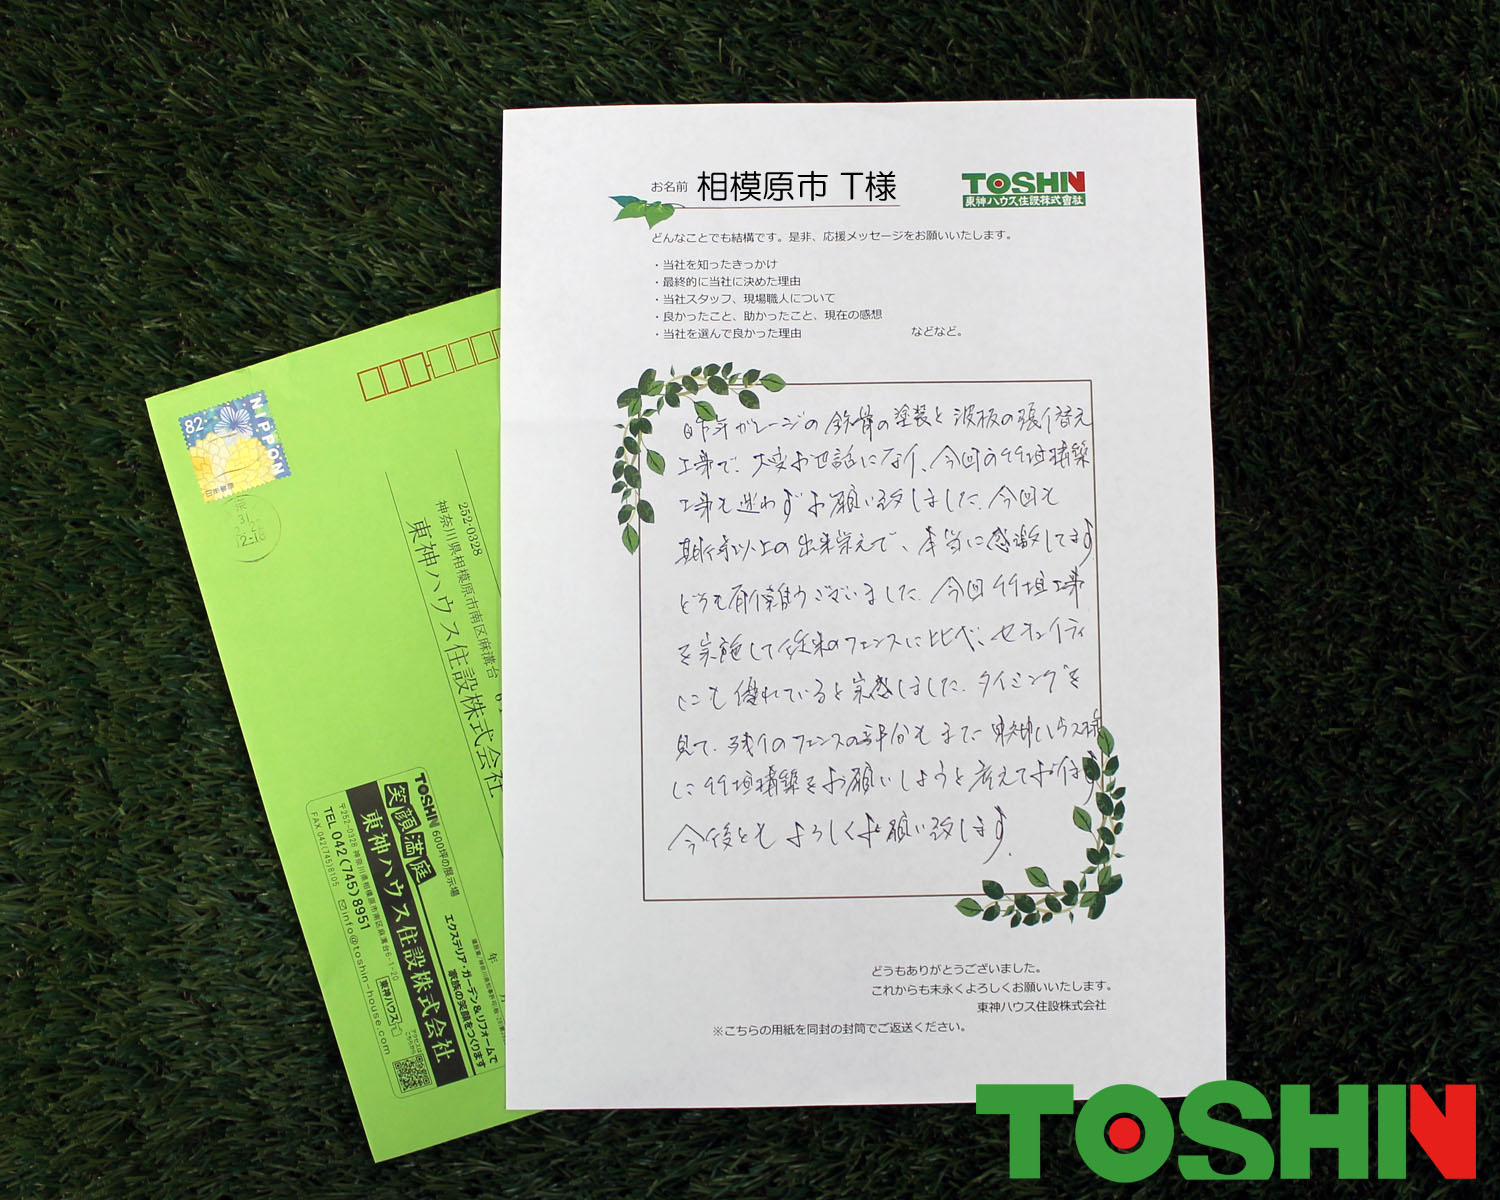 お名前 相模原市 T様
TOSHIN
東神ハウス住設株式會社
どんなことでも結構です。是非、応援メッセージをお願いいたします。
・当社を知ったきっかけ
・最終的に当社に決めた理由
・当社スタッフ、現場職人について
・良かったこと、助かったこと、現在の感想
・当社を選んで良かった理由 などなど。
昨年ガレージの鉄骨の塗装と波板の張り替え
工事で、大変お世話になり、今回の竹垣構築
工事も迷わずお願い致しました。今回も
期待以上の出来栄えで、本当に感激してます
どうも有り難うございました。今回竹垣工事
を実施して従来のフェンスに比べ、セキュリティ
にも優れていると実感しました。タイミングを
見て、残りのフェンスの部分もまた東神ハウス様
に竹垣構築をお願いしようと考えております
今後ともよろしくお願い致します。
どうもありがとうございました。
これからも末永くよろしくお願いいたします。
東神ハウス住設株式会社
※こちらの用紙を同封の封筒でご返送ください。
82
NIPPON
日本郵便
12-18
252-0328
神奈川県相模原市南区麻溝台
東神ハウス住設株式会社
年
TOSHIN 600坪の展示場
笑顔満庭
エクステリア・ガーデン&リフォームで
家族の笑顔をつくります
東神ハウス住設株式会社
〒252-0328 神奈川県相模原市南区麻溝台6-1-20
TEL 042(745)8951
FAX 042(745)8105
info@toshin-house.com
東神ハウス
アクセスは
こちらから
TOSHIN